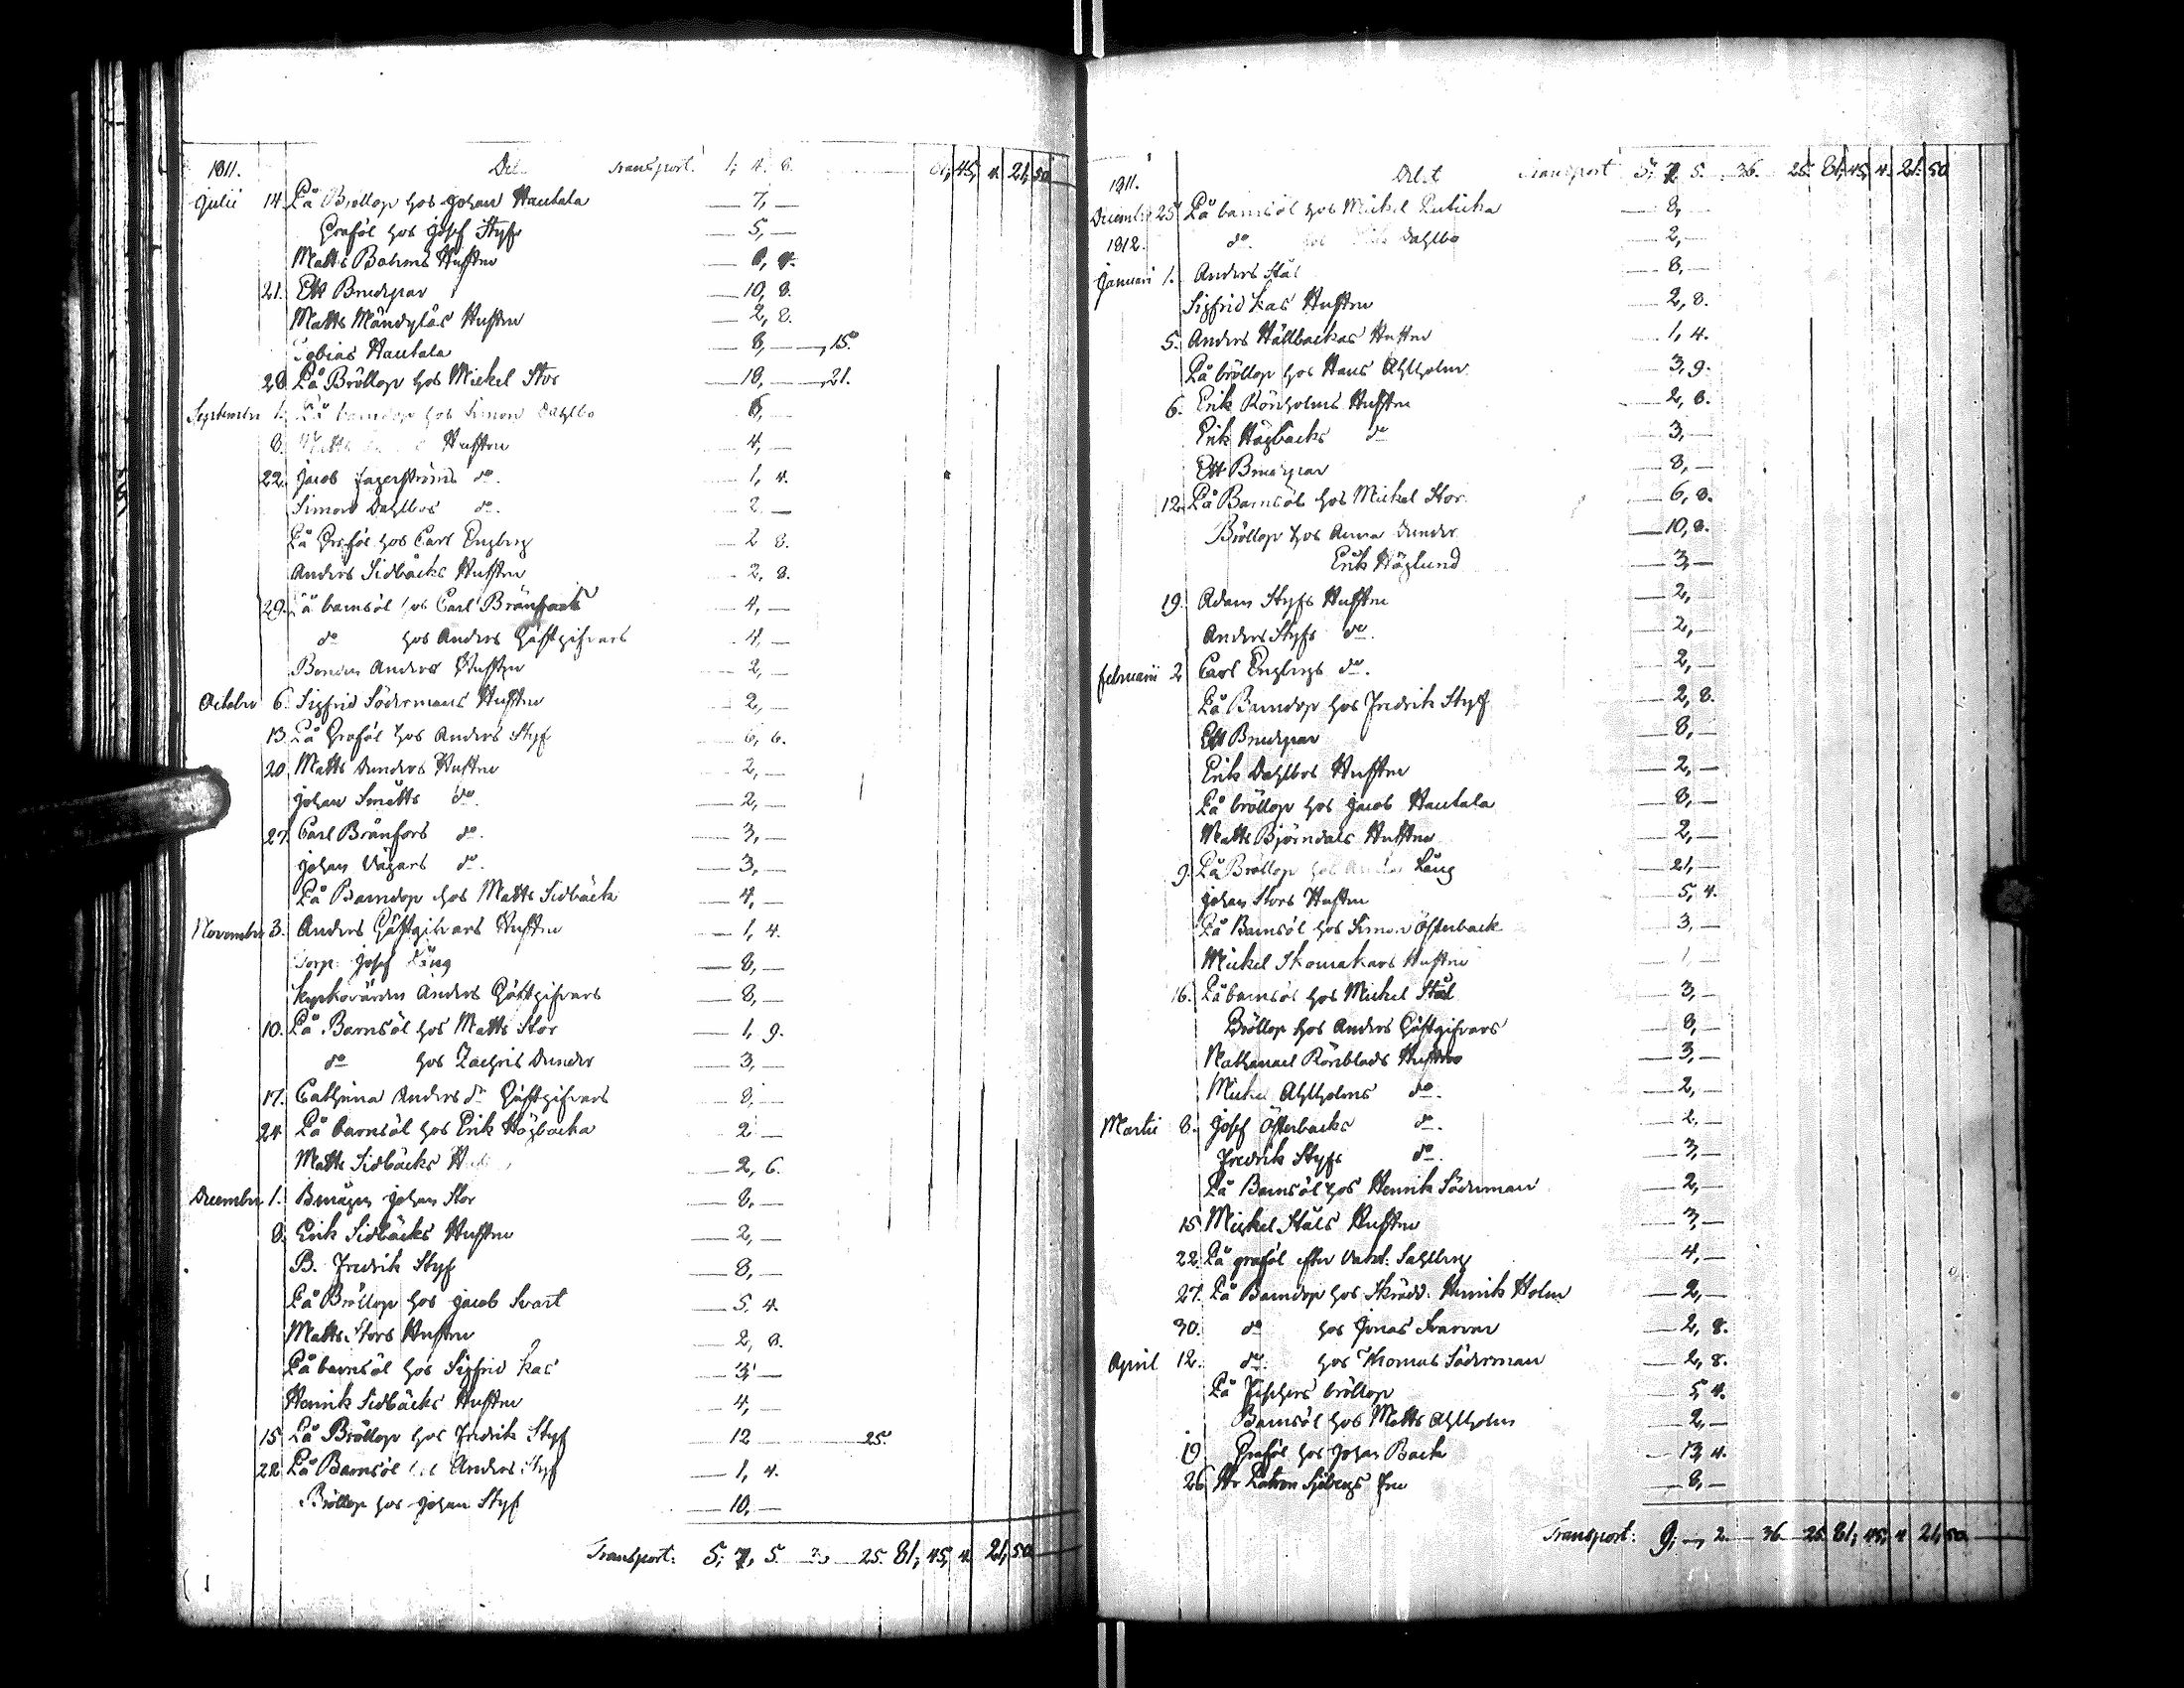 1811. Transport 1, 4. 8. 81, 45, 4. 21, 50
Julii 14. På Bröllop hos Johan Hautala — 7, —
Graföl hos Josef Styf — 5, —
Matts Bohms Hustru
21. Ett Brudepar — 10, 8.
Matts Hustru — 2, 8.
Tobias Hautala — 8, — 15.
28. På Bröllop hos Mickel Stor — 18, — 21.
September 1. På barndop hos Simon Dahlbo — 6, —
8. Matts Hustru — 4, —
22. Jacob Fagerströms do. — 1, 4.
Simon Dahlbos do. — 2. —
På Graföl hos Carl Engberg — 2 8.
Anders Sidbäcks Hustru — 2, 8.
29. På barnsöl hos Carl Brånfors — 4, —
do hos Anders Gästgifvars — 4, —
Bonden Anders Hustru — 2, —
October 6. Sigfrid Södermans Hustru — 2, —
13. På Graföl hos Anders Styf — 6, 6.
20. Matts Dunders Hustru — 2, —
Johan Smätts do. — 2, —
27. Carl Brånfors do. — 3, —
Johan Vägars do. — 3, —
På Barndop hos Matts Sidbäck — 4, —
November 3. Anders Gästgifvars Hustru — 1, 4.
Torp: Josef Lång — 8, —
Kyrkovärden Anders Gästgifvars — 8, —
10. På Barnsöl hos Matts Stor — 1, 9.
do hos Zachris Dunder — 3, —
17. Cathrina Anders dr Gästgifvars — 8, —
24. På barnsöl hos Erik Högbacka — 2 —
Matts Sidbäcks — 2, 6.
December 1. Johan Stor — 8, —
8. Erik Sidbäcks Hustru — 2, —
B. Fredrik Styf — 8, —
På Bröllop hos Jacob Svart — 5. 4.
Matts Stors Hustru — 2, 8.
På barnsöl hos Sigfrid Kas — 3, —
Henrik Sidbäcks Hustru — 4, —
15. På Bröllop hos Fredrik Styf — 12 — 25.
22. På Barnsöl hos Anders Styf — 1, 4.
Bröllop hos Johan Styf — 10, —
Transport: 5, 7, 5. 36 25. 81, 45, 4. 21, 50
1811. Transport 5, 7 5. 36. 25. 81, 45, 4. 21. 50
December 25. På barnsöl hos Mickel — 8, —
1812. do. hos Dahlbo — 2, —
Januari 1. Anders Stål — 8, —
Sigfrid Kas Hustru — 2, 8.
5. Anders Hällbackas Hustru — 1, 4.
På bröllop hos Hans Ahlholm — 3, 9.
6. Erik Rönholms Hustru — 2, 8.
Erik Högbacks do — 3, —
Ett Brudepar — 8, —
12. På Barnsöl hos Mickel Stor — 6, 8.
Bröllop hos Anna Dunder — 10, 8.
Erik Höglund — 3, —
19. Adam Styfs Hustru — 2, —
Anders Styfs do. — 2, —
Februarii 2 Carl Engbergs do. — 2, —
På Barndop hos Fredrik Styf — 2, 8.
Ett Brudepar — 8, —
Erik Dahlbos Hustru — 2, —
På bröllop hos Jacob Hautala — 8, —
Matts Björndals Hustru — 2, —
9. På Bröllop hos Lång — 21, —
Johan Stors Hustru — 5, 4.
På Barnsöl hos Simon Österback — 3, —
Mickel Skomakars Hustru — 1 —
16. På barnsöl hos Mickel Stål — 3, —
Bröllop hos Anders Gästgifvars — 8, —
Nathanael Rönblads Hustru — 3, —
Mickel Ahlholms do. — 2, —
Martii 8. Josef Österbacks do. — 2, —
Fredrik Styfs do. — 3, —
På Barnsöl hos Henrik Söderman — 2, —
15 Mickel Ståls Hustru — 3, —
22. På graföl efter Sahlberg — 4, —
27. På Barndop hos Skrädd. Henrik Holm — 2, —
30. do hos Jonas — 2, 8.
April 12. do. hos Thomas Söderman — 2, 8.
På Fischers bröllop — 5, 4.
Barnsöl hos Matts Ahlholm — 2, —
19 Graföl hos Johan Back — 13, 4.
26 Hr Patron Sjöbergs Fru — 8, —
Transport: 9, —, 2. 36 25. 81, 45, 4 21, 50